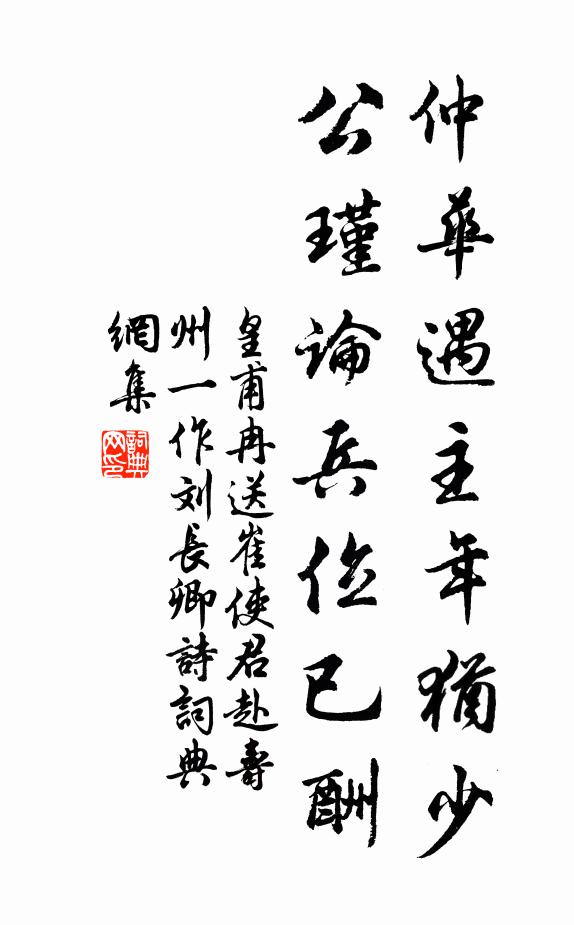 仲華遇主年猶少
公瑾論兵位已酬
皇甫冉送崔使君赴壽
州一作刘長卿詩詞典
網集
詞典
网印